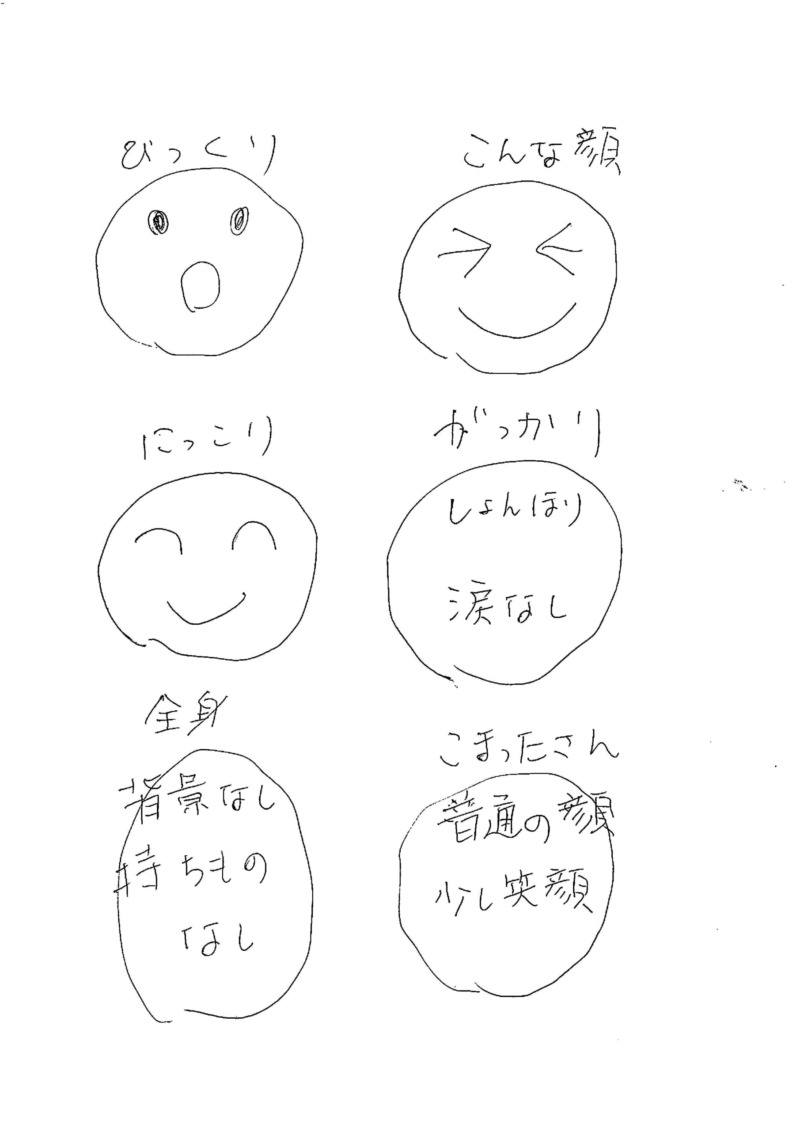 びっくり
こんな顔
にっこり
がっかり
しょんぼり
涙なし
全身
背景なし
持ちもの
なし
こまったさん
普通の顔
少し笑顔